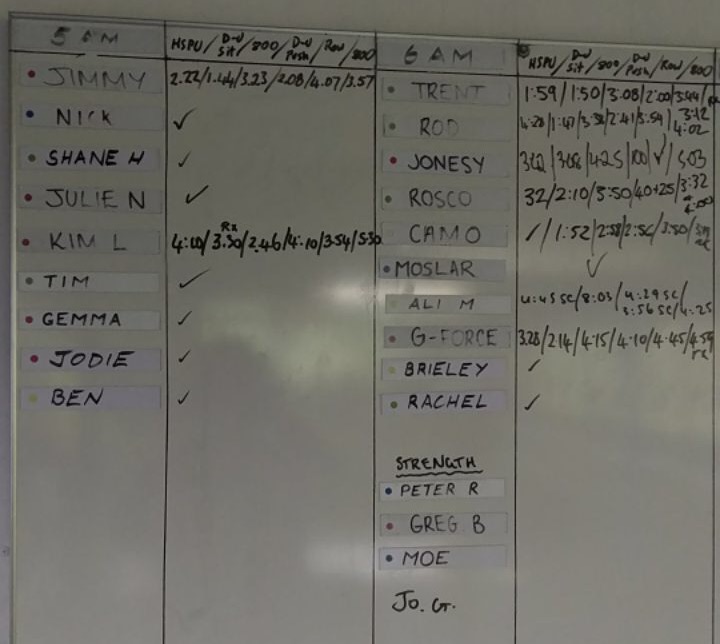 5 AM
HSPU / D-U Sit / 800 / D-U Push / Row / 800
JIMMY 2.22/1.44/3.23/2.08/4.07/3.57
NICK ✓
SHANE H ✓
JULIE N ✓
KIM L 4:10/3.50/2.46/4.10/3:54/5:30
Rx
TIM ✓
GEMMA ✓
JODIE ✓
BEN ✓
6 AM
HSPU / D-U Sit / 800 / D-U Push / Row / 800
TRENT 1:59/1:50/3:08/2:00/3:44/
ROD 4:28/1:47/3:32/2:41/3:59/ 3:12
4:02
JONESY
ROSCO 32/2:10/3:50/40+25/3:32
CAMO ✓/1:52/2:58/2:56/3:50/
MOSLAR ✓
ALI M 4:45 sc/8:03/4:29 sc/
3:56 sc/4:25
G-FORCE 3.28/2.14/4.15/4.10/4.45/4.59
rx
BRIELEY ✓
RACHEL ✓
STRENGTH
PETER R
GREG B
MOE
JO. G.